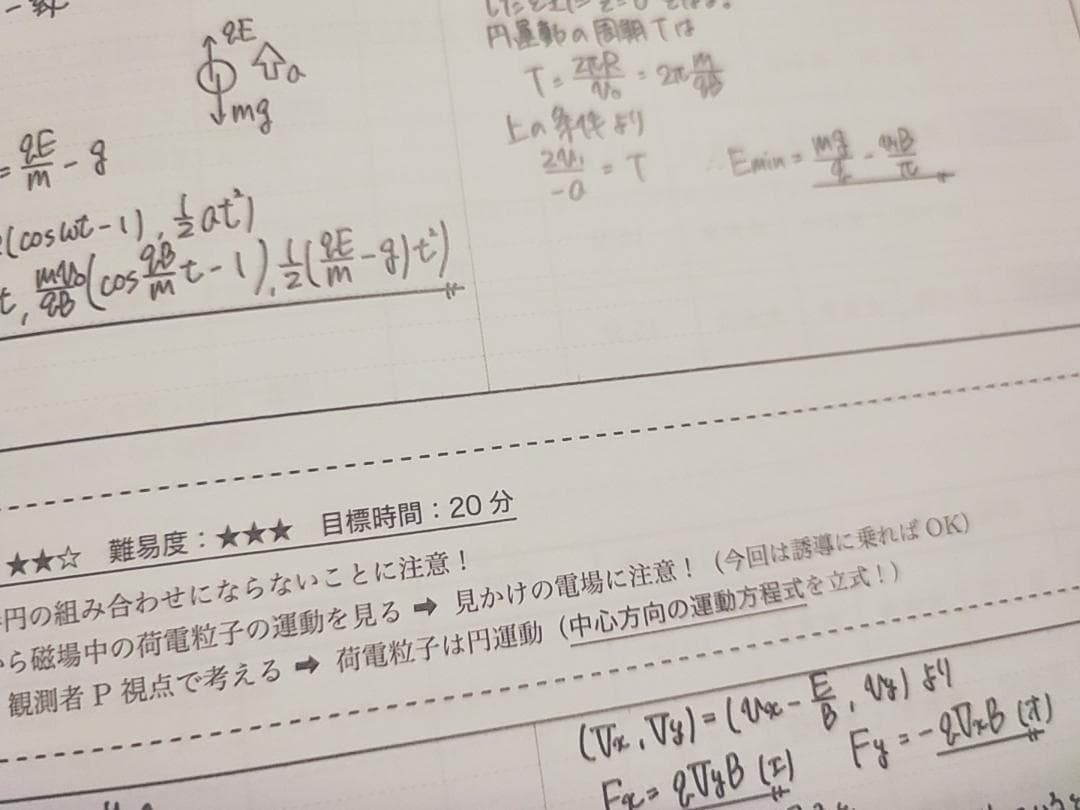 qE
a
mg
= qE/m - g
(cosωt - 1), 1/2 at²)
t, mv₀/qB (cos qB/m t - 1), 1/2 (qE/m - g) t²)
円運動の周期Tは
T = 2πR/v₀ = 2π m/qB
上の条件より
2v₁/-a = T
∴ Emin = mg/q - v₁B/π
★★☆ 難易度：★★★ 目標時間：20 分
円の組み合わせにならないことに注意！
ら磁場中の荷電粒子の運動を見る ➡ 見かけの電場に注意！（今回は誘導に乗ればOK）
観測者 P 視点で考える ➡ 荷電粒子は円運動（中心方向の運動方程式を立式！）
(Vx, Vy) = (vx - E/B, vy) より
Fx = qVyB (エ) Fy = -qVxB (オ)